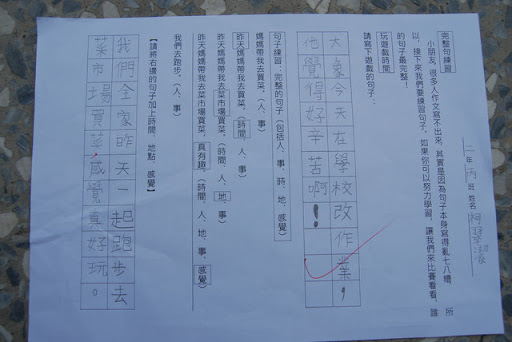 完整句練習
二年丙班 姓名 柯
小朋友，很多人作文寫不出來，其實是因為句子本身寫得亂七八糟，所
以，接下來我們要練習句子，如果你可以努力學習，讓我們來比賽看看，誰
的句子最完整！
玩遊戲時間
請寫下遊戲的句子：
大象今天在學校改作業，
他覺得好辛苦啊！
句子練習：完整的句子（包括人、事、時、地、感覺）
媽媽帶我去買菜。（人、事）
昨天媽媽帶我去買菜。（時間、人、事）
昨天媽媽帶我去菜市場買菜。（時間、人、地、事）
昨天媽媽帶我去菜市場買菜，真有趣。（時間、人、地、事、感覺）
我們去跑步。（人、事）
【請將右邊的句子加上時間、地點、感覺】
我們全家昨天一起跑步去
菜市場買菜，感覺真好玩。